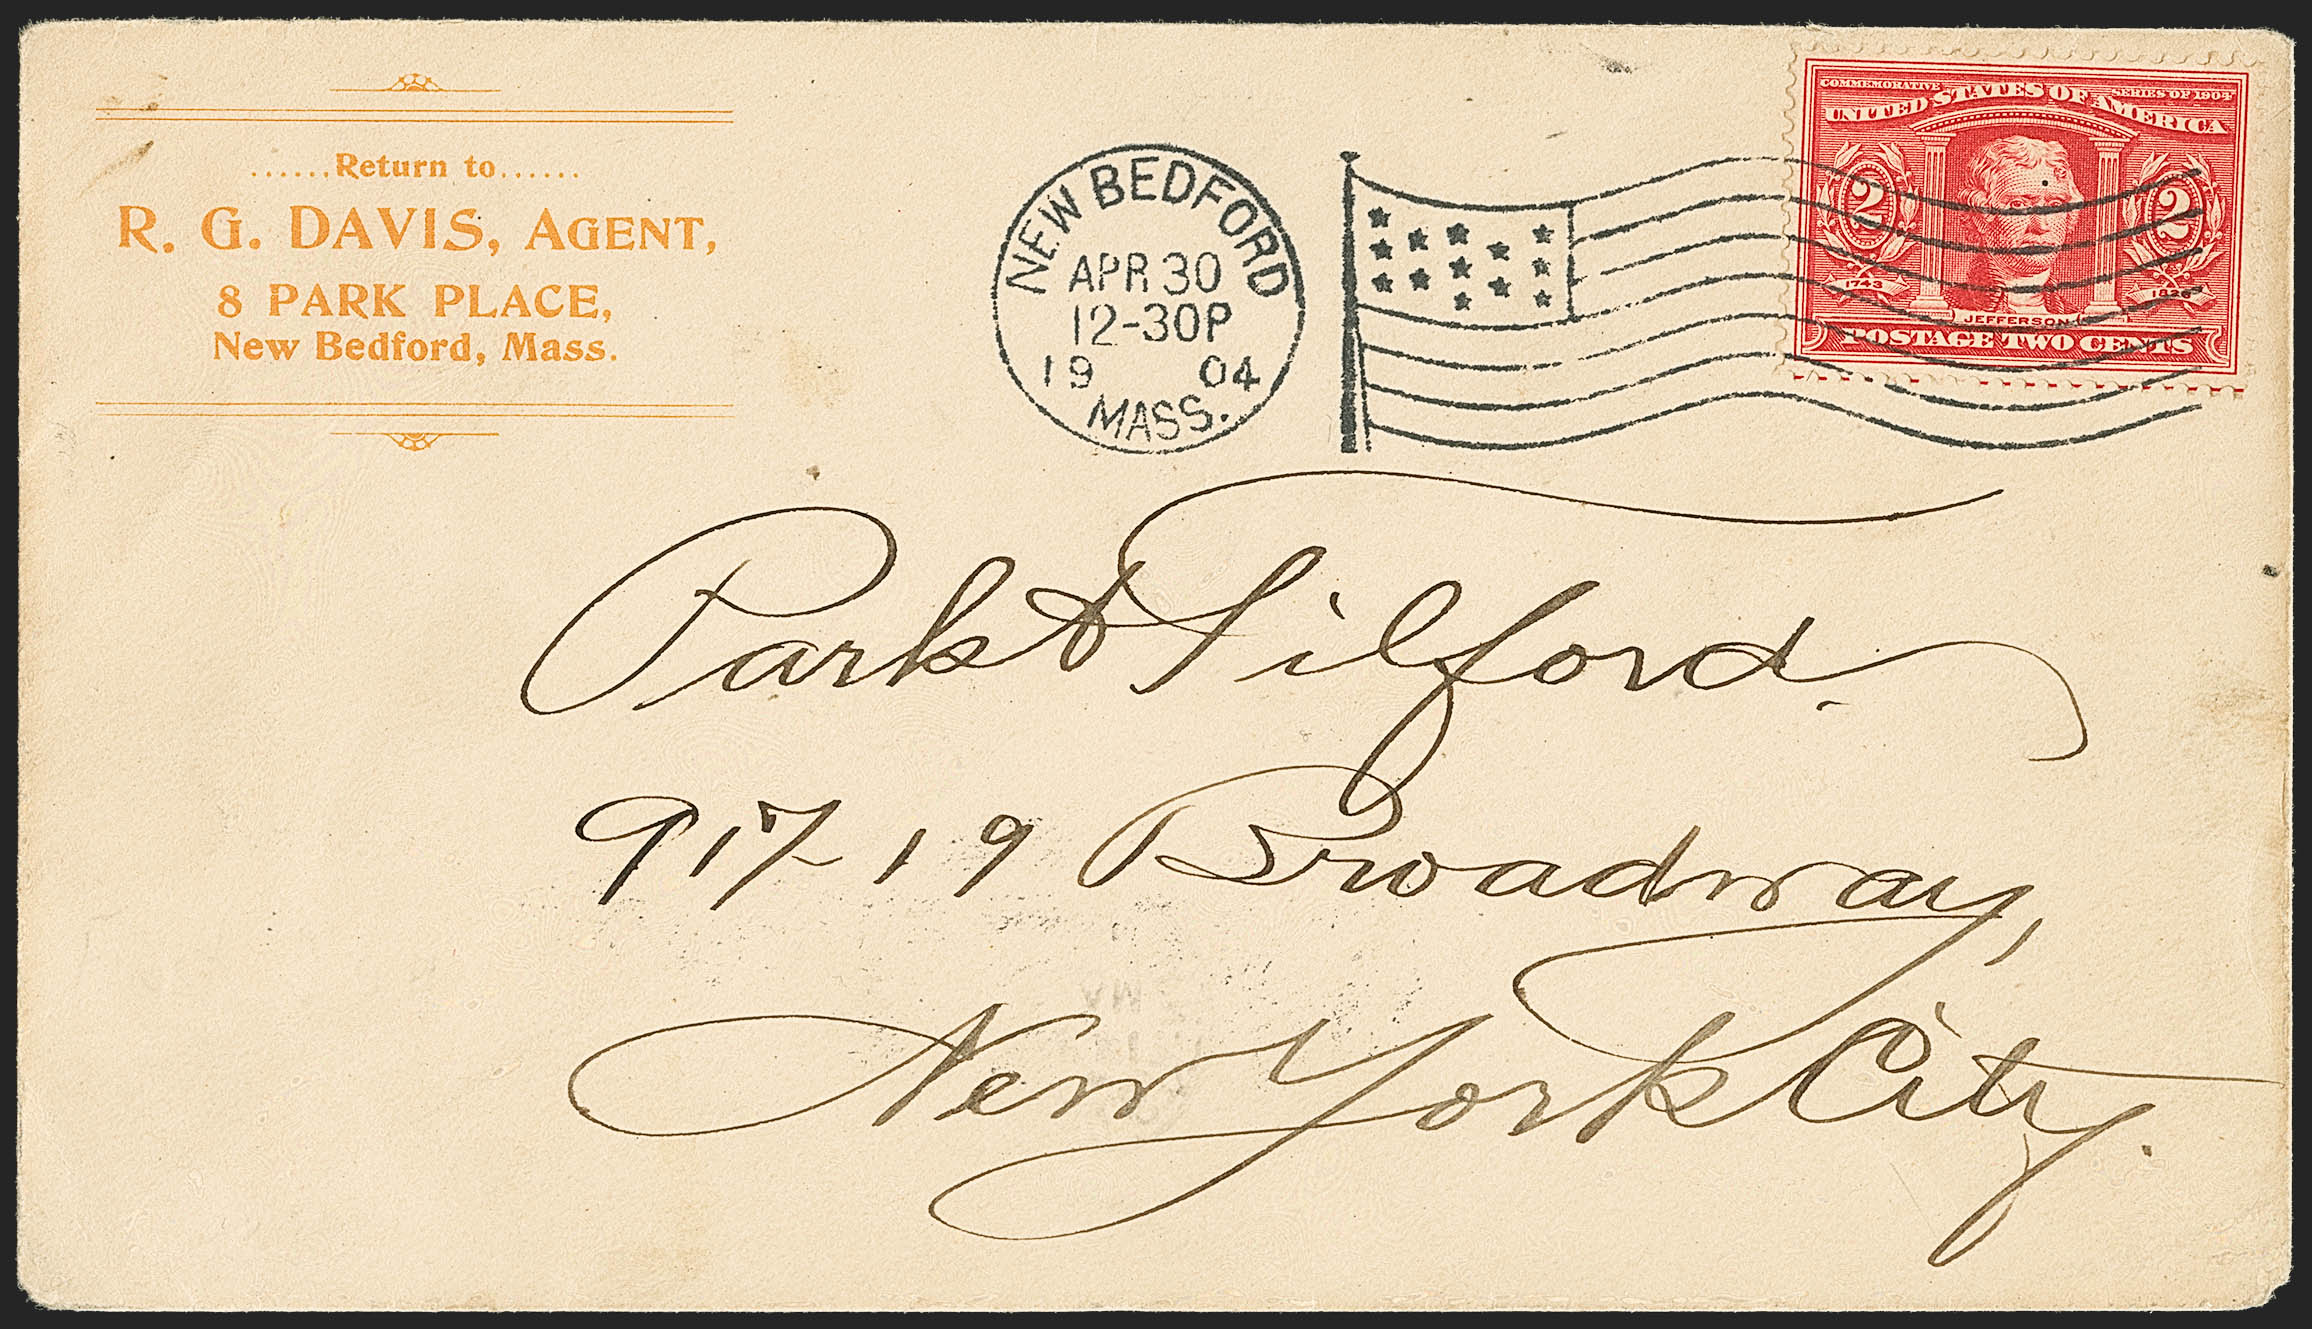 ......Return to......
R. G. DAVIS, AGENT,
8 PARK PLACE,
New Bedford, Mass.
NEW BEDFORD
APR 30
12-30P
19 04
MASS.
COMMEMORATIVE SERIES OF 1904
UNITED STATES OF AMERICA
2 2
1743 1826
JEFFERSON
POSTAGE TWO CENTS
Park & Tilford.
917-19 Broadway,
New York City.